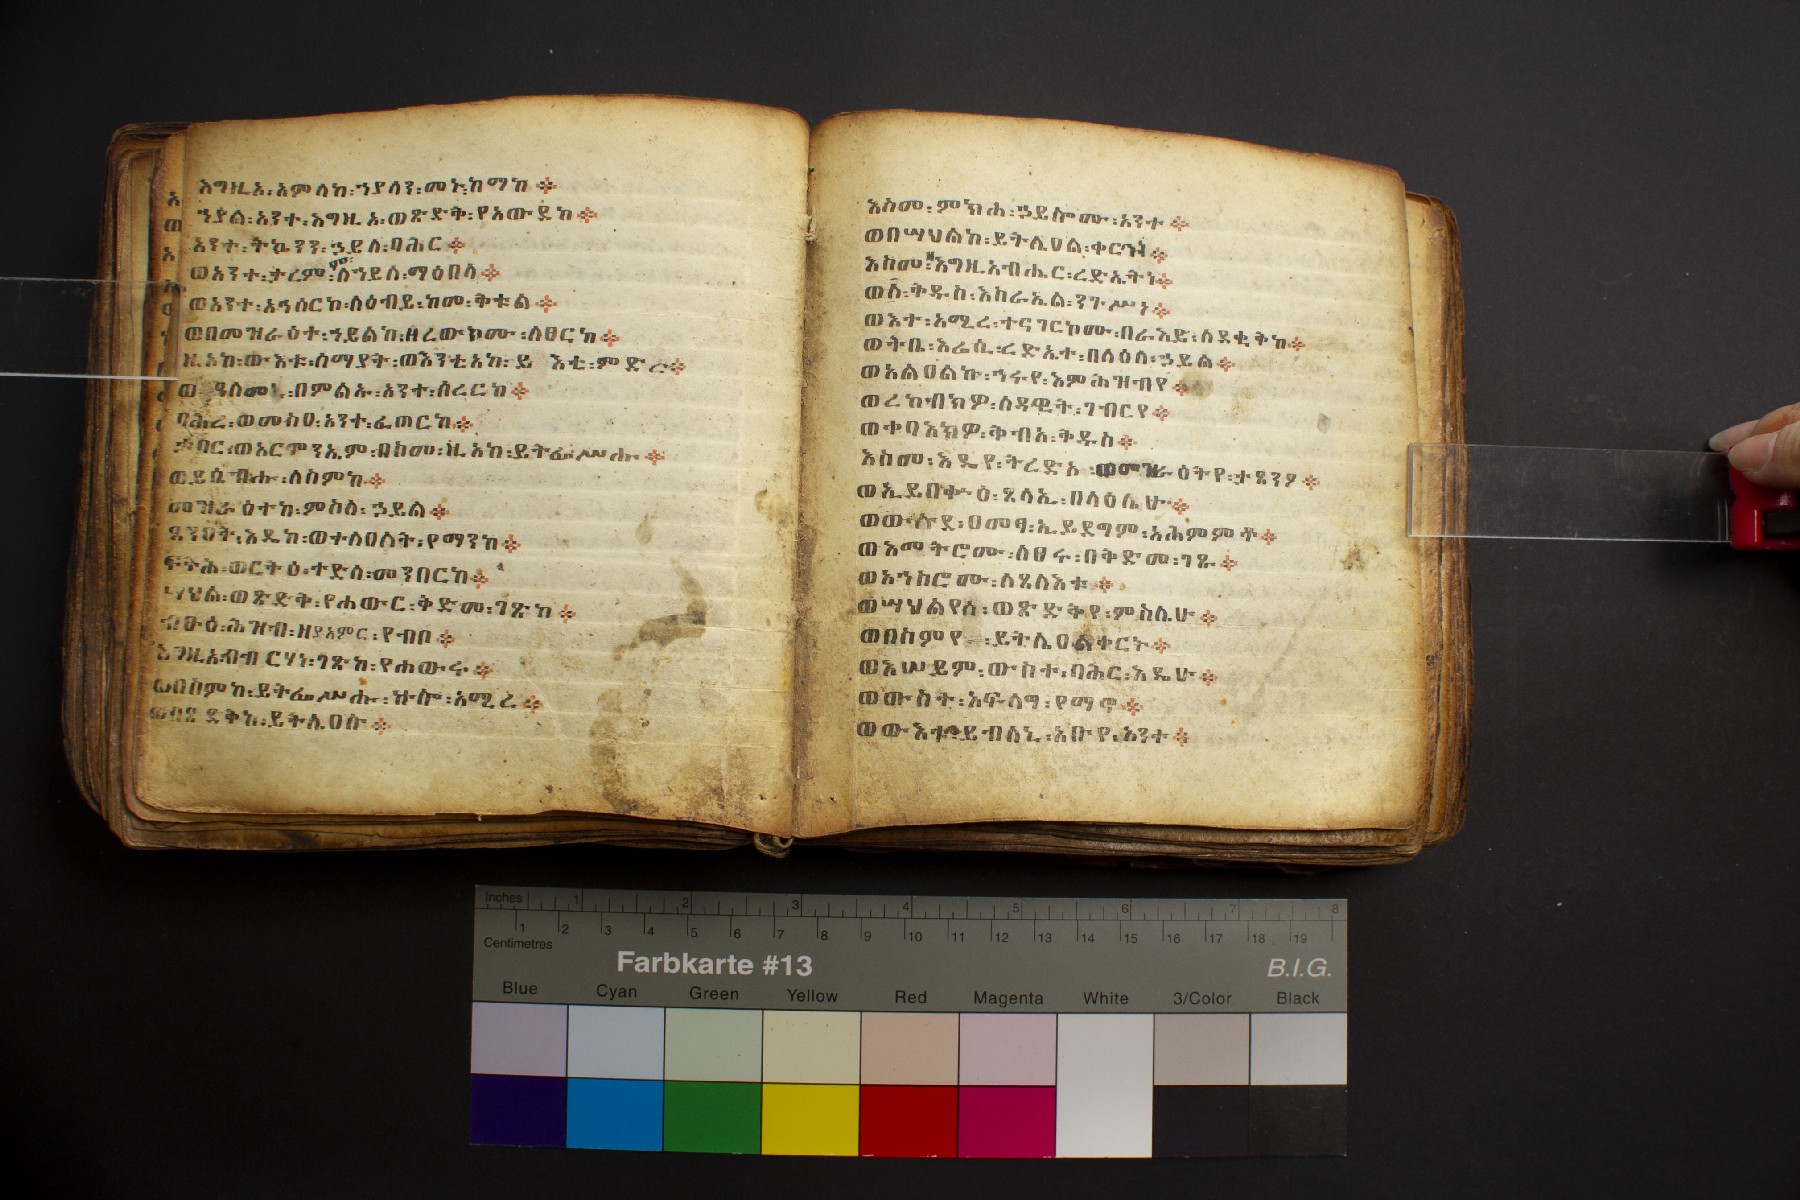 እግዚአ፡አምላከ፡ኀያላን፡መኑ፡ከማከ፨
ኀያል፡አንተ፡እግዚአ፡ወጽድቅ፡የአውደከ፨
አንተ፡ትኴንን፡ኃይለ፡ባሕር፨
ወአንተ፡ታረምም፡ለኀይለ፡ማዕበላ፨
ወአንተ፡አኅሰርኮ፡ለዕብይ፡ከመ፡ቅቱል፨
ወበመዝራዕተ፡ኀይልከ፡ዘረውኮሙ፡ለፀርከ፨
ዚአከ፡ውእቱ፡ሰማያት፡ወእንቲአከ፡ይ እቲ፡ምድር፨
በምልኡ፡አንተ፡ሰረርከ፨
ባሕረ፡ወመስዐ፡አንተ፡ፈጠርከ፨
ታቦር፡ወአርሞንኤም፡በከመ፡ዚአከ፡ይትፌሥሑ፨
ወይሴብሑ፡ለስምከ፨
መዝራዕተከ፡ምስለ፡ኃይል፨
ጸንዐት፡እዴከ፡ወተለዐለት፡የማንከ፨
ፍትሕ፡ወርትዕ፡ተድላ፡መንበርከ፨
ሣህል፡ወጽድቅ፡የሐውር፡ቅድመ፡ገጽከ፨
ብፁዕ፡ሕዝብ፡ዘያአምር፡የብቦ፨
እግዚአብብርሃነ፡ገጽከ፡የሐውሩ፨
ወበስምከ፡ይትፌሥሑ፡ኵሎ፡አሚረ፨
ወበጽድቅከ፡ይትሌዐሉ፨
እስመ፡ምክሐ፡ኃይሎሙ፡አንተ፨
ወበሣህልከ፡ይትሌዐል፡ቀርንነ፨
እስመ፡እግዚአብሔር፡ረድኤትነ፨
ወለ፡ቅዱስ፡እስራኤል፡ንጉሥነ፨
ወእተ፡አሚረ፡ተናገርኮሙ፡በራእይ፡ለደቂቅከ፨
ወትቤ፡እሬሲ፡ረድኤተ፡በላዕለ፡ኃይል፨
ወአልዐልኩ፡ኅሩየ፡እምሕዝብየ፨
ወረከብክዎ፡ለዳዊት፡ገብርየ፨
ወቀባእክዎ፡ቅብአ፡ቅዱስ፨
እስመ፡እዴየ፡ትረድኦ፡ወመዝራዕትየ፡ታጸንዖ፨
ወኢይበቍዕ፡ጸላኢ፡በላዕሌሁ፨
ወውሉደ፡ዐመፃ፡ኢይደግም፡አሕምሞቶ፨
ወእማትሮሙ፡ለፀሩ፡በቅድመ፡ገጹ፨
ወአኀስሮሙ፡ለጸለእቱ፨
ወሣህልየሰ፡ወጽድቅየ፡ምስሌሁ፨
ወበስምየ፡ይትሌዐል፡ቀርኑ፨
ወእሠይም፡ውስተ፡ባሕር፡እዴሁ፨
ወውስተ፡አፍላግ፡የማኖ፨
ወውእቱ፡ይብለኒ፡አቡየ፡አንተ፨
Inches 1 2 3 4 5 6 7 8
Centimetres 1 2 3 4 5 6 7 8 9 10 11 12 13 14 15 16 17 18 19
Farbkarte #13 B.I.G.
Blue Cyan Green Yellow Red Magenta White 3/Color Black